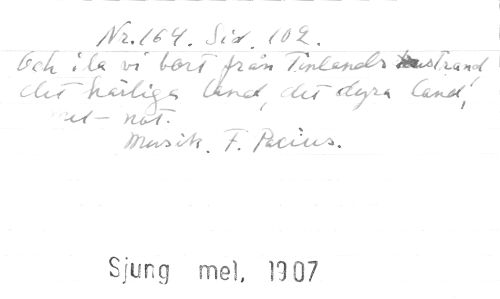 Nr. 164. Sid. 102.
Och ila vi bort från Finlands strand,
det härliga land, det dyra land,
met - not.
Musik. F. Pacius.
Sjung mel. 1907